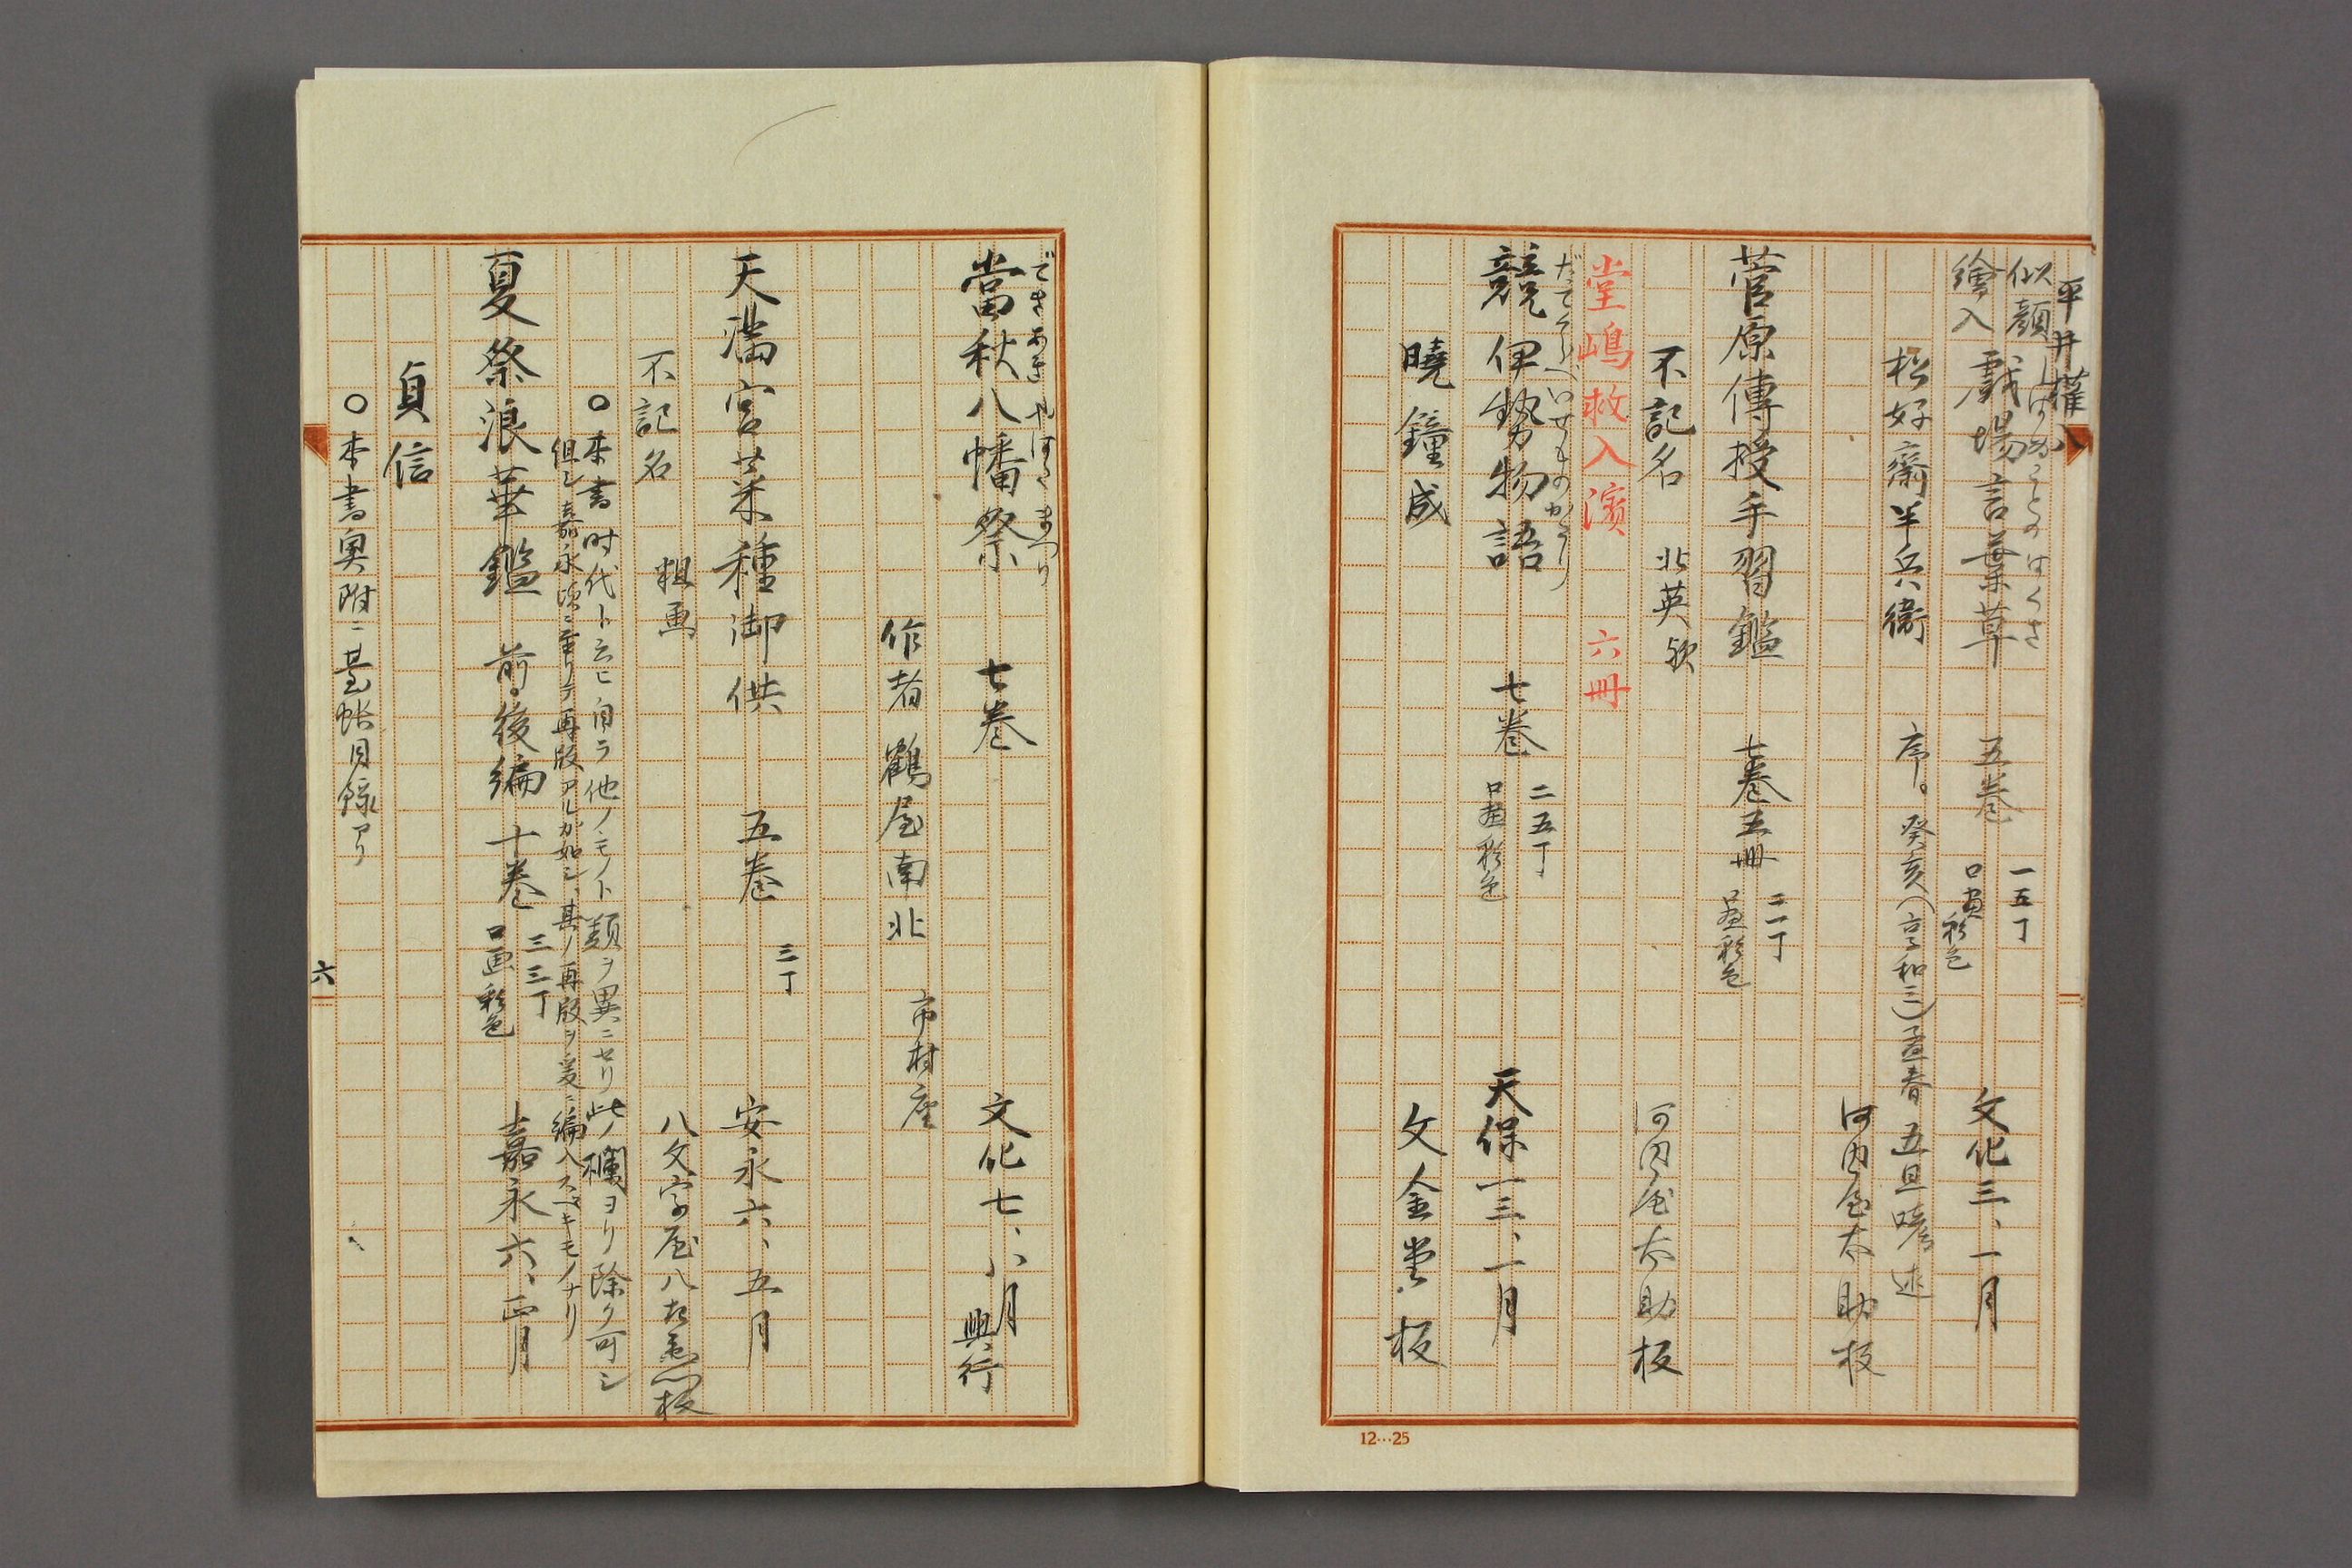 平井権八
似顔
繪入
戯場言葉草 五巻 一五丁 口画彩色 文化三、一月
しばゐことのはくさ
松好齋半兵衛 河内屋太助板
序。癸亥(享和三)孟春 五旦暁述
菅原傳授手習鑑 七巻五冊 二一丁 口画彩色
不記名 北英歟 河内屋太助板
堂嶋救入濱 六冊
だてくらべいせものがたり
競伊勢物語 七巻 二五丁 口画彩色 天保一三、一月
暁鐘成 文金堂板
12…25
できあきやはたまつり
當秋八幡祭 七巻 文化七、八月興行
作者 鶴屋南北 市村座
天満宮菜種御供 五巻 三丁 安永六、五月
不記名 粗画 八文字屋八左衛門板
○本書時代ト云ヒ自ラ他ノモノト類ヲ異ニセリ此ノ欄ヨリ除ク可シ
但シ嘉永頃ニ至リテ再版アルガ如シ、其ノ再版ヲ爰ニ編入スベキモノナリ
夏祭浪華鑑 前・後編 十巻 三三丁 口画彩色 嘉永六、正月
貞信
○本書奥附ニ基帳目録アリ
六